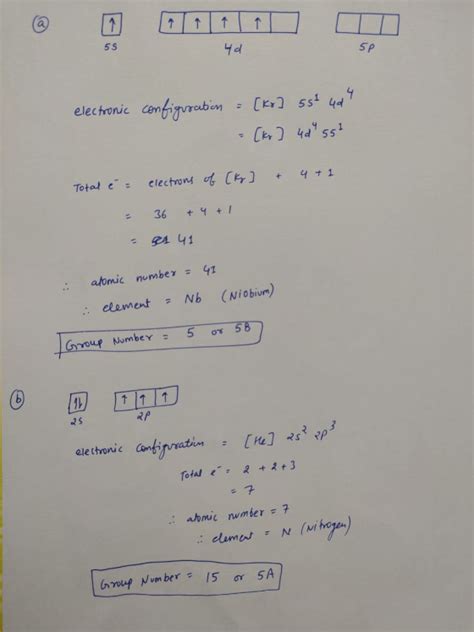 (a) ↑ ↑ ↑ ↑ ↑
5s 4d 5p
electronic configuration = [Kr] 5s¹ 4d⁴
= [Kr] 4d⁴ 5s¹
Total e⁻ = electrons of [Kr] + 4 + 1
= 36 + 4 + 1
= 41
∴ atomic number = 41
∴ element = Nb (Niobium)
Group Number = 5 or 5B
(b) ↑↓ ↑ ↑ ↑
2s 2p
electronic configuration = [He] 2s² 2p³
Total e⁻ = 2 + 2 + 3
= 7
∴ atomic number = 7
∴ element = N (Nitrogen)
Group Number = 15 or 5A